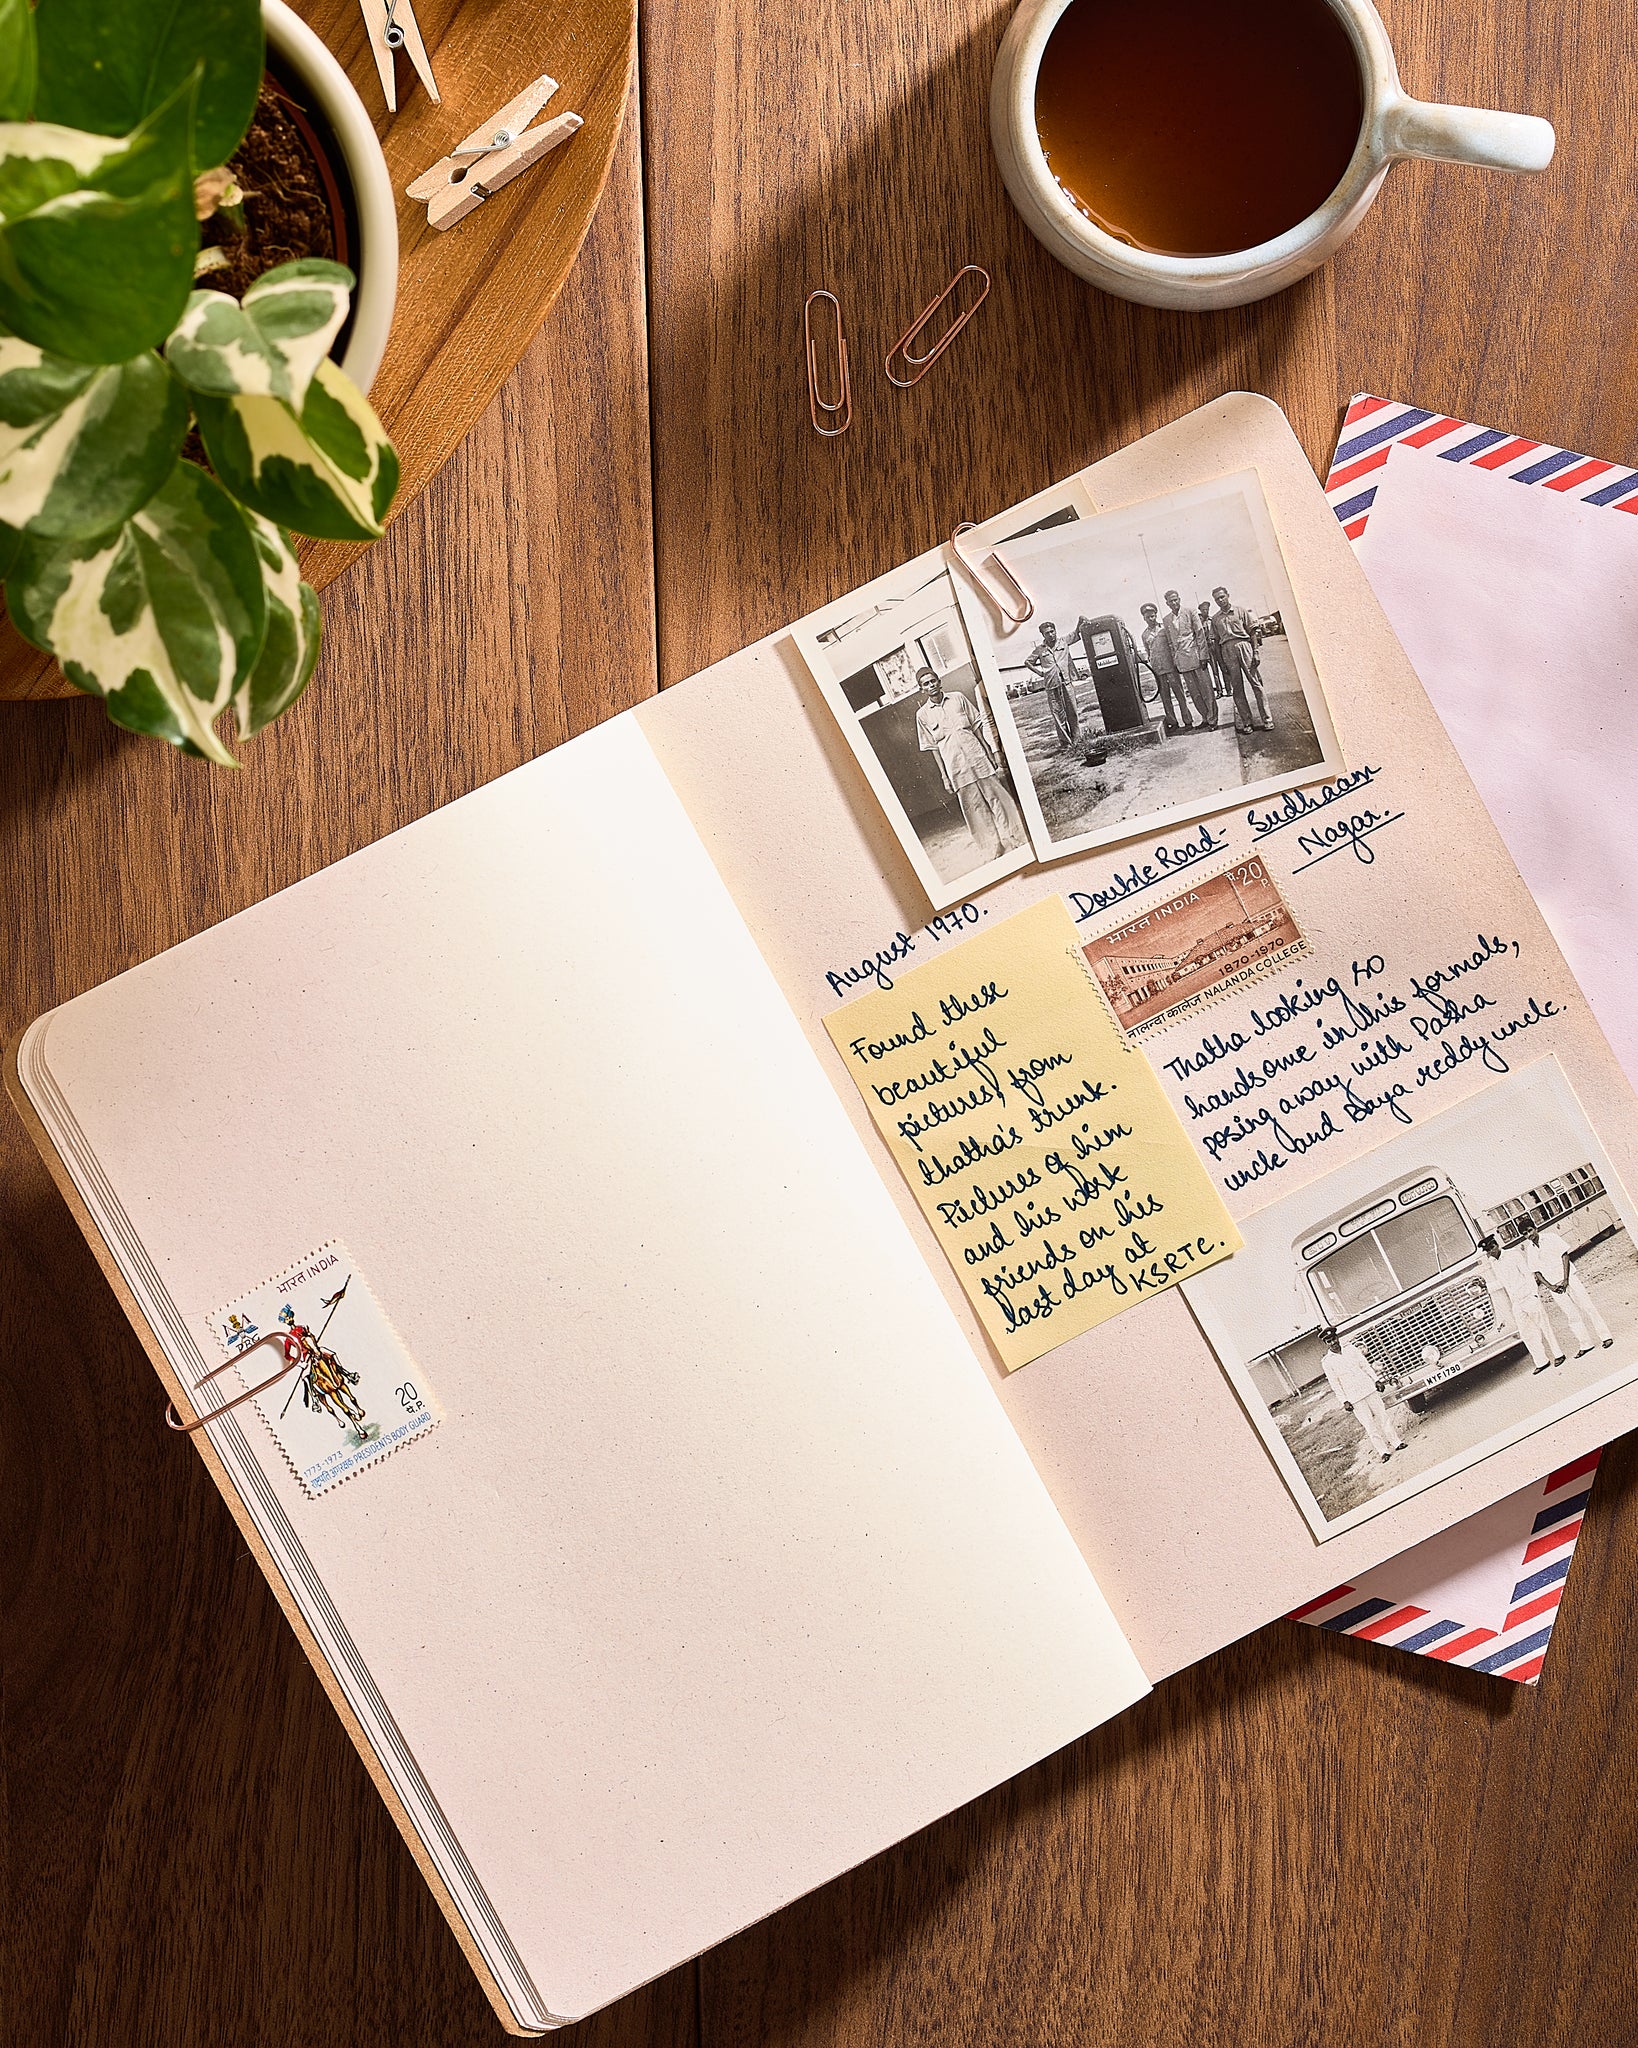 भारत INDIA
PBG
20
प.P.
1773-1973
राष्ट्रपति अंगरक्षक PRESIDENT'S BODY GUARD
August 1970.
Double Road- Sudhaam
Nagar.
भारत INDIA
20
1870-1970
नालन्दा कालेज NALANDA COLLEGE
Found these
beautiful
pictures, from
thatha's trunk.
Pictures of him
and his work
friends on his
last day at
KSRTC.
Thatha looking so
handsome in his formals,
posing away with Pasha
uncle and Baya reddy uncle.
MYF1790